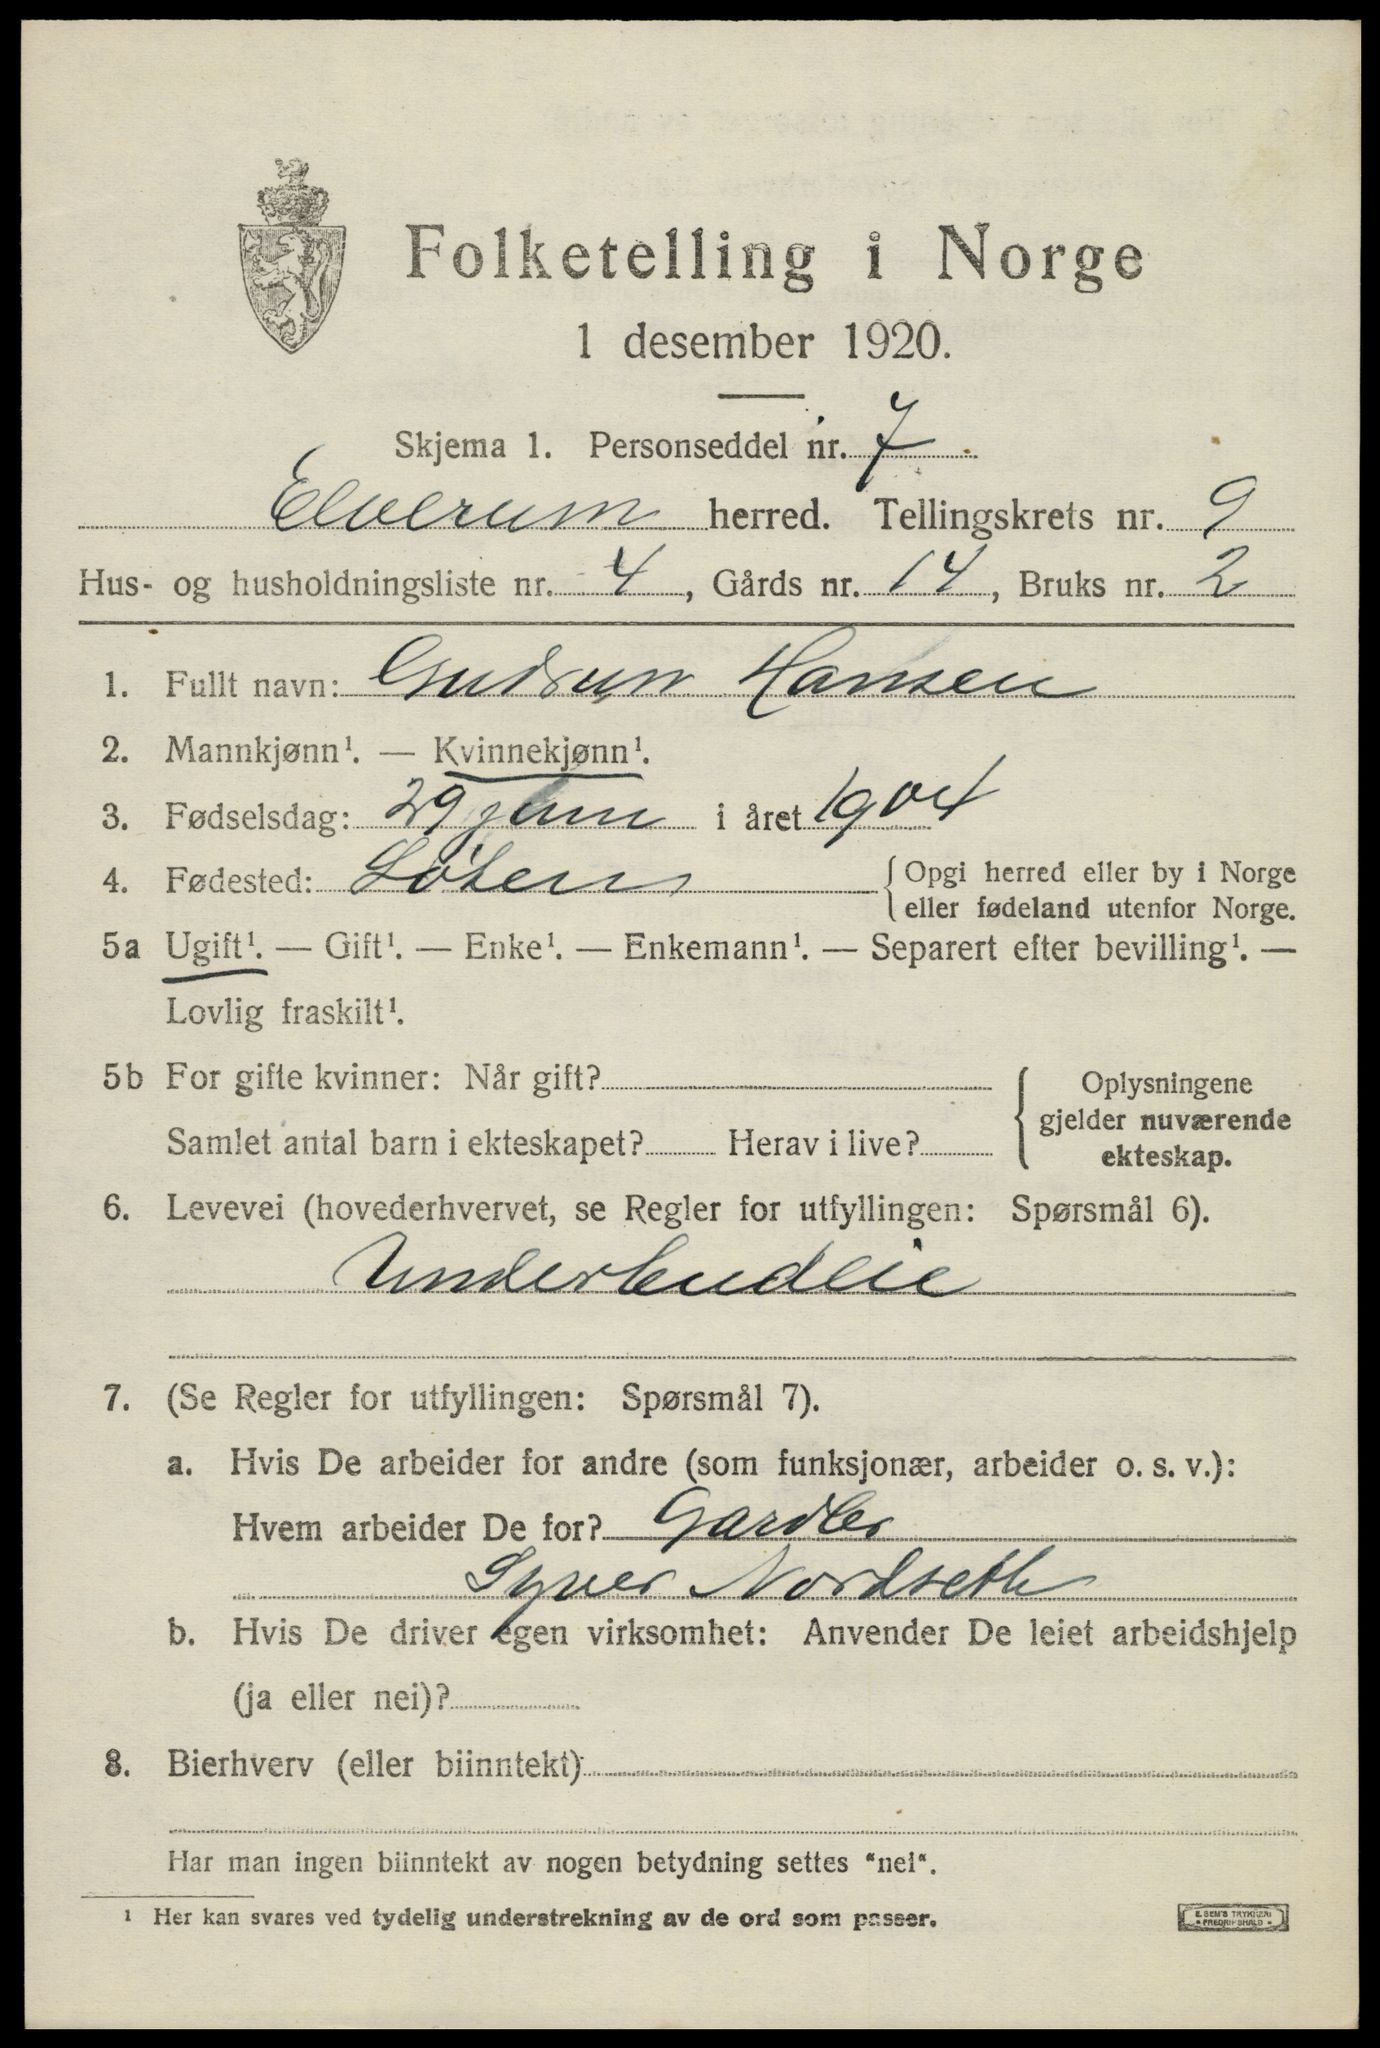 Folketelling i Norge
1 desember 1920.
Skjema 1. Personseddel nr. 7
Elverum herred. Tellingskrets nr. 9
Hus- og husholdningsliste nr. 4, Gårds nr. 14, Bruks nr. 2
1. Fullt navn: Gudrun Hansen
2. Mannkjønn¹. — Kvinnekjønn¹.
3. Fødselsdag: 29 juni i året 1904
4. Fødested: Løten {Opgi herred eller by i Norge
eller fødeland utenfor Norge.
5a Ugift¹. — Gift¹. — Enke¹. — Enkemann¹. — Separert efter bevilling¹. —
Lovlig fraskilt¹.
5b For gifte kvinner: Når gift?
Samlet antal barn i ekteskapet? Herav i live?
{Oplysningene
gjelder nuværende
ekteskap.
6. Levevei (hovederhvervet, se Regler for utfyllingen: Spørsmål 6).
Underbudeie
7. (Se Regler for utfyllingen: Spørsmål 7).
a. Hvis De arbeider for andre (som funksjonær, arbeider o. s. v.):
Hvem arbeider De for? Gardbr
Syver Nordseth
b. Hvis De driver egen virksomhet: Anvender De leiet arbeidshjelp
(ja eller nei)?
8. Bierhverv (eller biinntekt)
Har man ingen biinntekt av nogen betydning settes "nei".
¹ Her kan svares ved tydelig understrekning av de ord som passer.
E. SEM'S TRYKKERI
FREDRIKSHALD